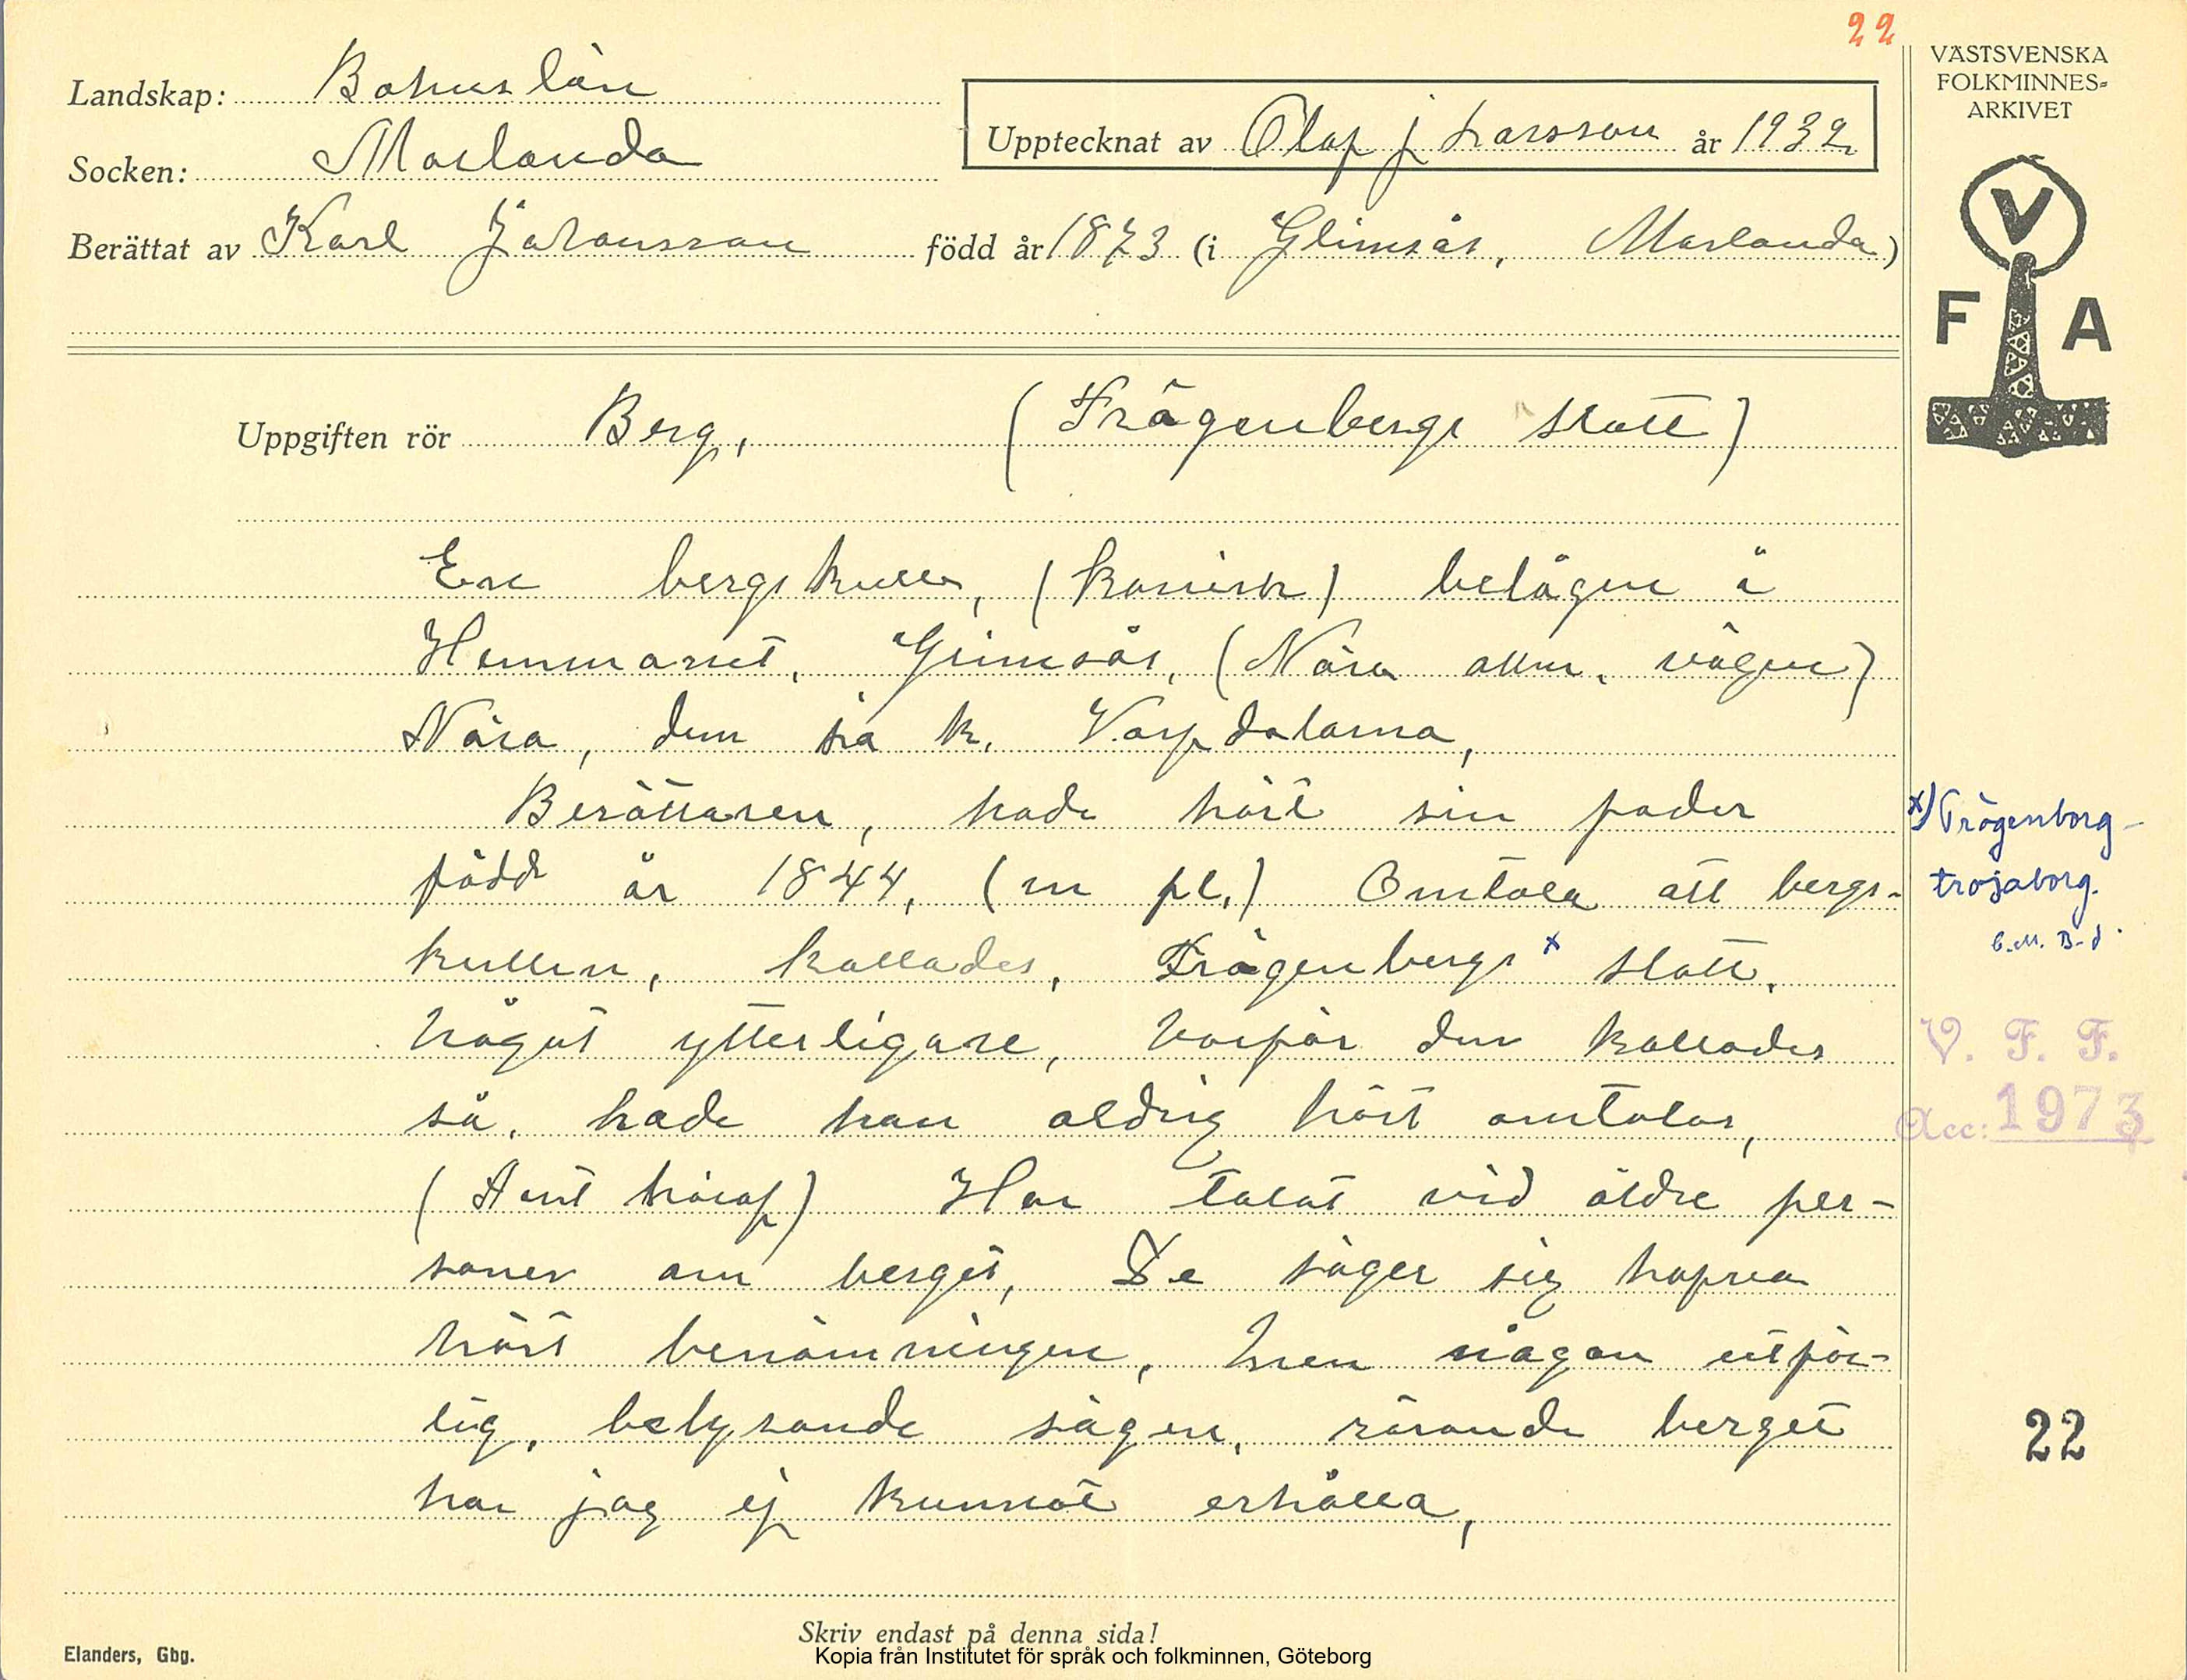 22
VÄSTSVENSKA
FOLKMINNES-
ARKIVET
Landskap: Bohuslän
Upptecknat av Olof J Larsson år 1932
Socken: Morlanda
Berättat av Karl Johansson född år 1873 (i Glimsås, Morlanda)
V
F A
Uppgiften rör Berg, (Trägenbergs slott)
En bergskulle, (konisk) belägen å
Hemmanet, Glimsås, (Nära allm. vägen)
Nära, dem så k. Varpdalarna,
Berättaren, hade hört sin fader
född år 1844, (m pl.) Omtala att bergs-
kullen, kallades, Trägenbergs x slott.
Något ytterligare, varför den kallades
så, hade han aldrig hört omtalas,
Har talat vid äldre per-
soner om berget, De säger sig hafva
hört benämningen, Men någon utför-
lig, belysande sägen, rörande berget
har jag ej kunnat erhålla,
x) Trägenborg -
trojaborg.
C.M. B-d.
V. F. F.
Acc: 1973
22
Skriv endast på denna sida!
Elanders, Gbg.
Kopia från Institutet för språk och folkminnen, Göteborg